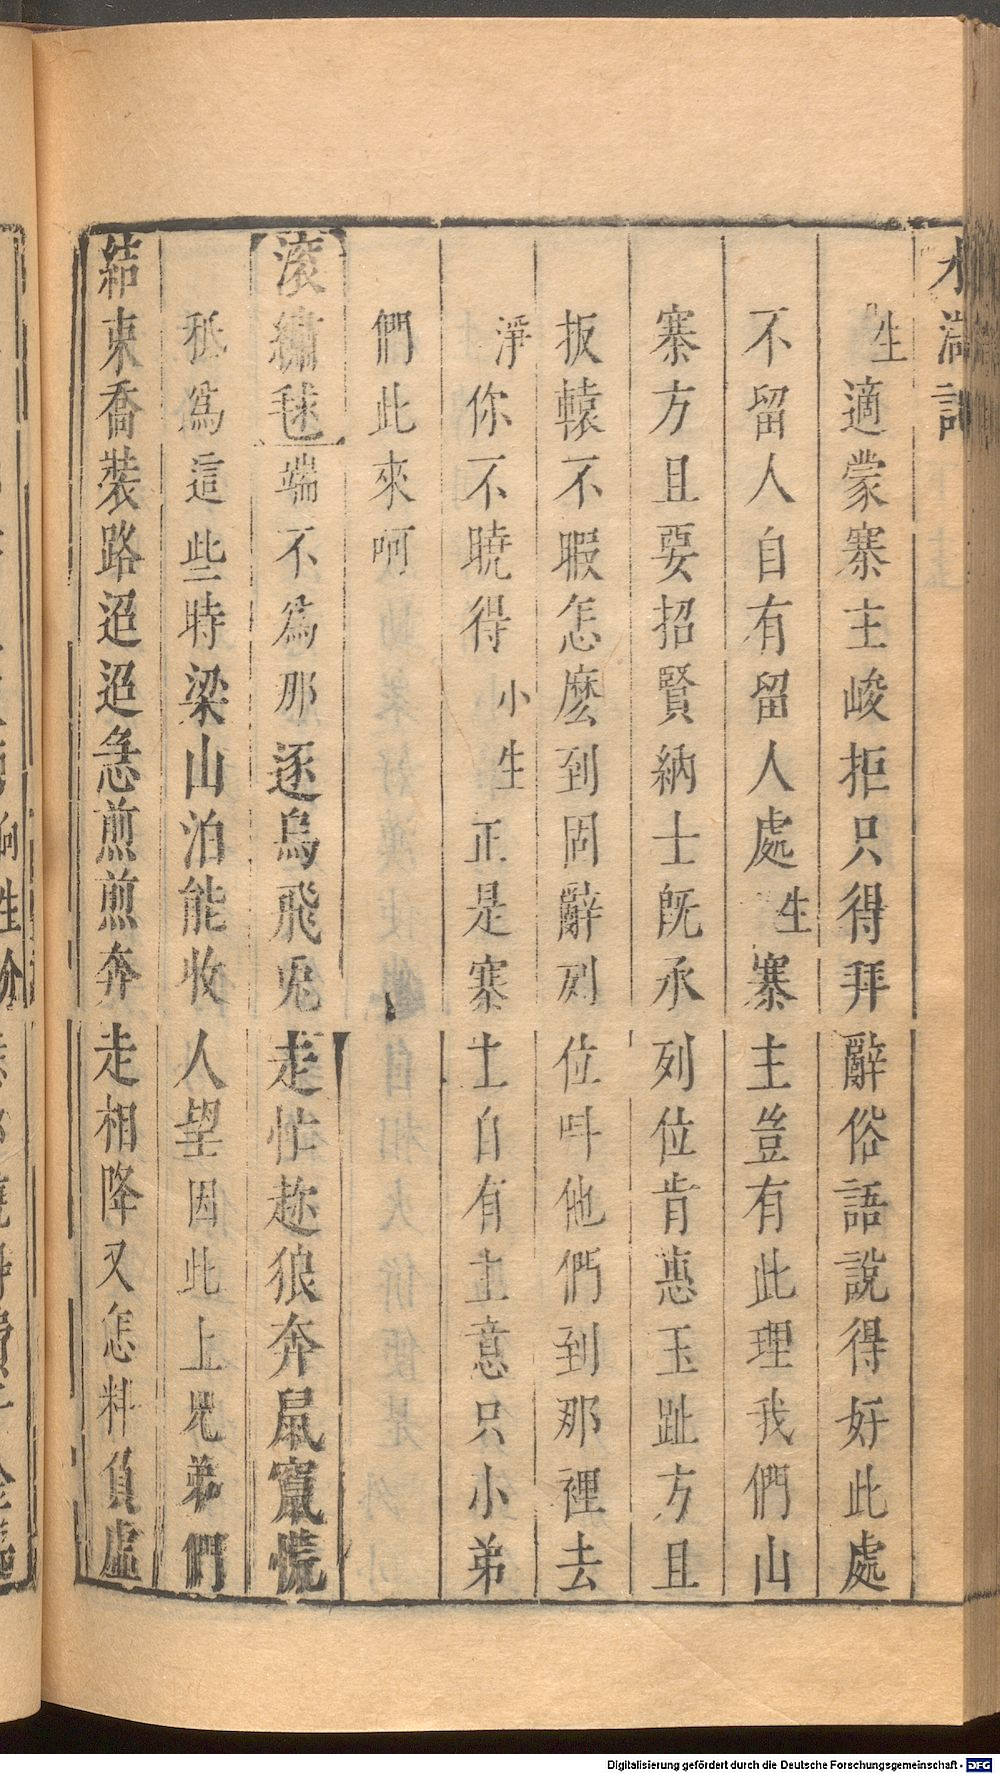 水滸記
生適蒙寨主峻拒只得拜辭俗語說得好此處
不留人自有留人處生寨主豈有此理我們山
寨方且要招賢納士既承列位肯惠玉趾方且
扳轅不暇怎麽到固辭列位呌他們到那裡去
淨你不曉得小生正是寨主自有主意只小弟
們此來呵
滚繡毬端不爲那逐烏飛兎走忙趂狼奔鼠竄慌
秪爲這些時梁山泊能收人望因此上兄弟們
結束喬裝路迢迢急煎煎奔走相降又怎料負虛
Digitalisierung gefördert durch die Deutsche Forschungsgemeinschaft - DFG